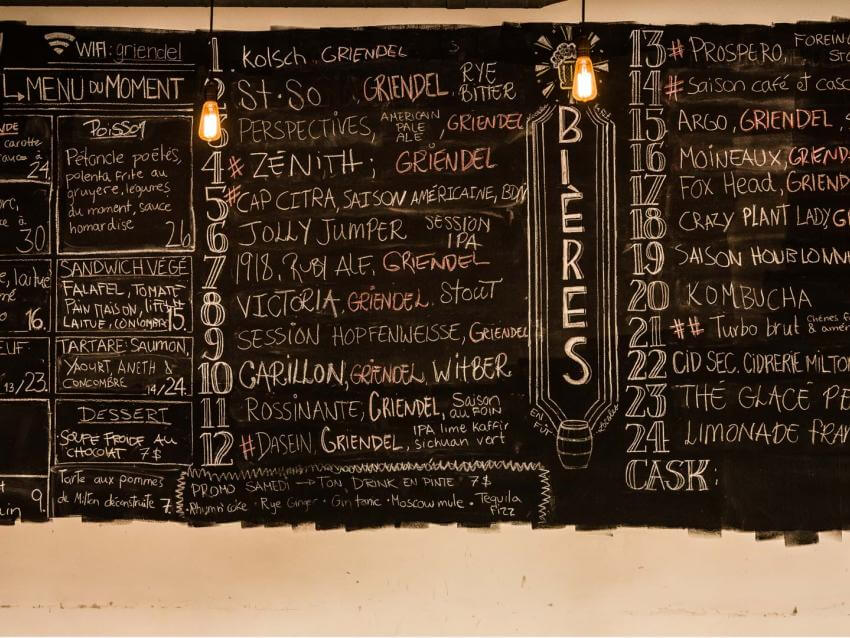 WIFI: griendel
MENU DU MOMENT
carotte
24
30
16.
13/23.
9.
POISSON
Pétoncle poêlés,
polenta frite au
gruyère, légumes
du moment, sauce
homardise
26
SANDWICH VÉGÉ
FALAFEL, TOMATE
PAIN MAISON,
LAITUE, 15.
TARTARE: SAUMON,
YAOURT, ANETH &
CONCOMBRE 14/24.
DESSERT
SOUPE FROIDE AU
CHOCOLAT 7$
Tarte aux pommes
de Milton déconstruite 7.
1 Kolsch GRIENDEL
2 St-So GRIENDEL, RYE BITTER
3 PERSPECTIVES, AMERICAN PALE ALE, GRIENDEL
4 # ZÉNITH; GRIENDEL
5 # CAP CITRA, SAISON AMÉRICAINE, BDN
6 JOLLY JUMPER SESSION IPA
7 1918, RUBY ALE, GRIENDEL
8 VICTORIA, GRIENDEL. STOUT
9 SESSION HOPFENWEISSE, GRIENDEL
10 CARILLON, GRIENDEL, WITBER
11 ROSSINANTE, GRIENDEL, Saison au FOIN
12 # DASEIN, GRIENDEL, IPA lime kaffir sichuan vert
PROMO SAMEDI → TON DRINK EN PINTE 7$
• Rhum n' coke • Rye Ginger • Gin tonic • Moscow mule • Tequila Fizz
BIÈRES
EN FÛT
13 # PROSPERO, FOREIGN
14 # Saison café et casc
15 ARGO, GRIENDEL,
16 MOINEAUX, GRIEND
17 FOX Head, GRIEN
18 CRAZY PLANT LADY, G
19 SAISON HOUBLONN
20 KOMBUCHA
21 ## Turbo brut
22 CID SEC. CIDRERIE MILTON
23 THÉ GLACÉ PÊ
24 LIMONADE FRA
CASK: